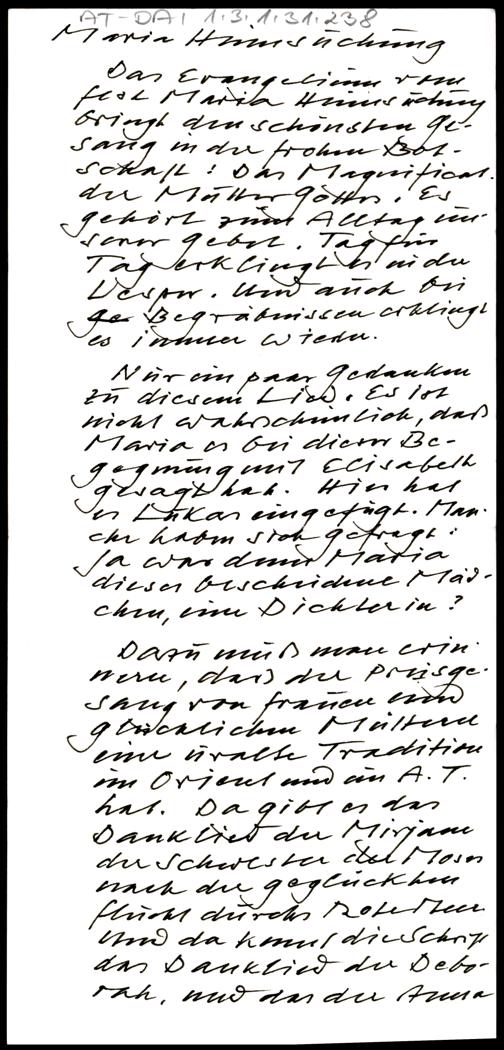 AT-DAI 1.3.1.31.238
Maria Heimsuchung
Das Evangelium vom
Fest Maria Heimsuchung
bringt den schönsten Ge-
sang in der frohen Bot-
schaft: Das Magnificat
der Mutter Gottes. Es
gehört zum Alltag un-
serer Gebet. Tag für
Tag erklingt es in der
Vesper. Und auch bei
ge Begräbnissen erklingt
es immer wieder.
Nur ein paar Gedanken
zu diesem Lied. Es ist
nicht wahrscheinlich, daß
Maria es bei dieser Be-
gegnung mit Elisabeth
gesagt hat. Hier hat
es Lukas eingefügt. Man-
che haben sich gefragt:
Ja war denn Maria
dieses bescheidene Mäd-
chen, eine Dichterin?
Dazu muß man erin-
nern, daß der Preisge-
sang von Frauen und
glücklichen Müttern
eine uralte Tradition
im Orient und im A.T.
hat. Da gibt es das
Danklied der Mirjam
der Schwester des Moses
nach der geglückten
Flucht durchs Rote Meer
Und da kennt die Schrift
das Danklied der Debo-
rah, und das der Anna